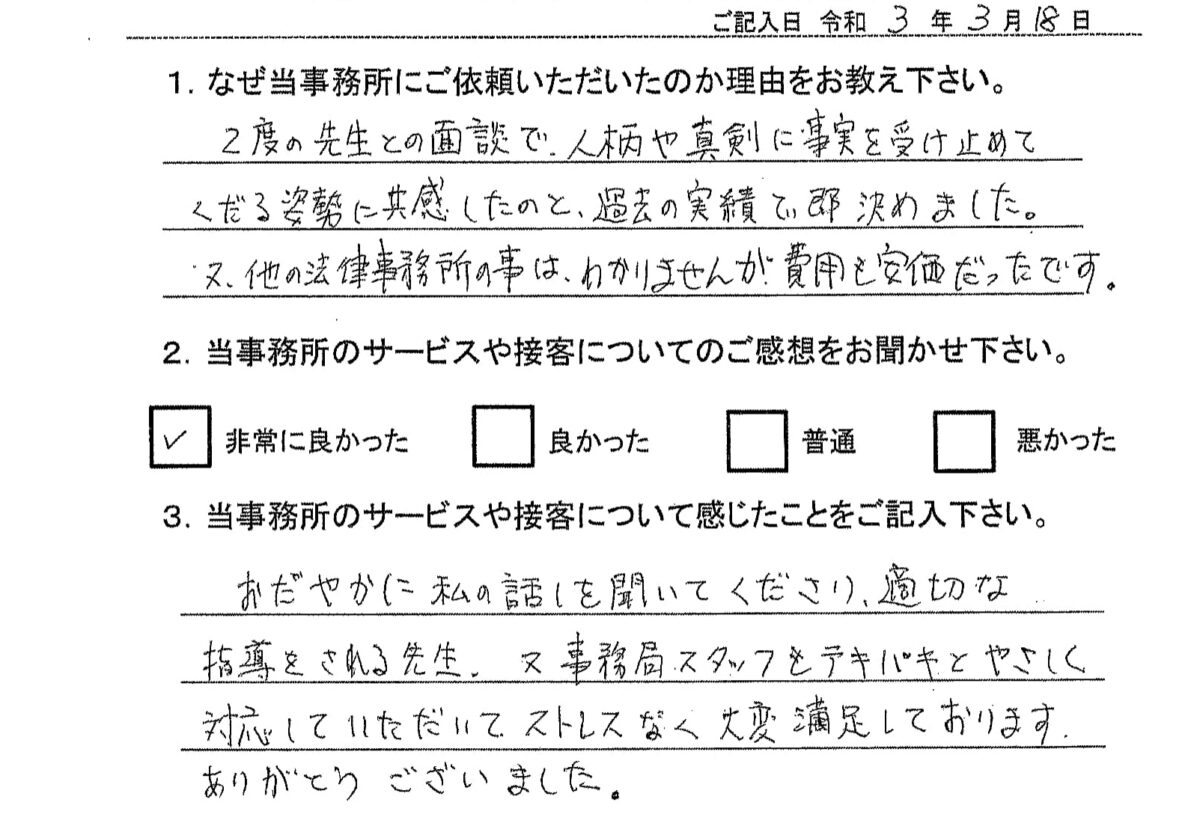 ご記入日 令和 3 年 3 月 18 日
1. なぜ当事務所にご依頼いただいたのか理由をお教え下さい。
2度の先生との面談で、人柄や真剣に事実を受け止めて
くだる姿勢に共感したのと、過去の実績で即決めました。
又、他の法律事務所の事は、わかりませんが費用も安価だったです。
2. 当事務所のサービスや接客についてのご感想をお聞かせ下さい。
✓ 非常に良かった 良かった 普通 悪かった
3. 当事務所のサービスや接客について感じたことをご記入下さい。
おだやかに私の話しを聞いてくださり、適切な
指導をされる先生、又事務局スタッフもテキパキとやさしく
対応していただいてストレスなく大変満足しております.
ありがとうございました。